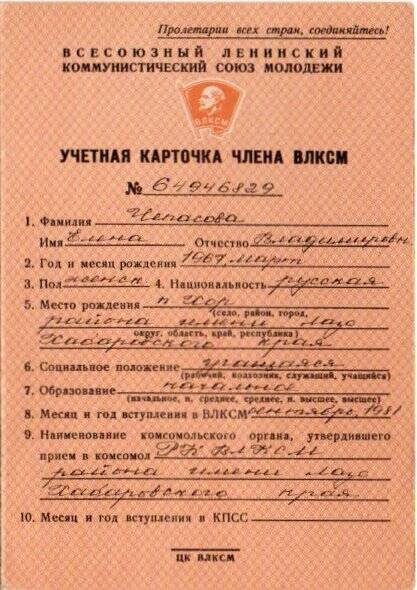 Пролетарии всех стран, соединяйтесь!
ВСЕСОЮЗНЫЙ ЛЕНИНСКИЙ
КОММУНИСТИЧЕСКИЙ СОЮЗ МОЛОДЕЖИ
ВЛКСМ
УЧЕТНАЯ КАРТОЧКА ЧЛЕНА ВЛКСМ
№ 64946829
1. Фамилия Чепасова
Имя Елена Отчество Владимировн
2. Год и месяц рождения 1967 март
3. Пол женск 4. Национальность русская
5. Место рождения п Хор
(село, район, город,
района имени Лазо
округ, область, край, республика)
Хабаровского края
6. Социальное положение учащаяся
(рабочий, колхозник, служащий, учащийся)
7. Образование начальное
(начальное, н. среднее, среднее, н. высшее, высшее)
8. Месяц и год вступления в ВЛКСМ сентябрь, 1981
9. Наименование комсомольского органа, утвердившего
прием в комсомол РК ВЛКСМ
района имени Лазо
Хабаровского края
10. Месяц и год вступления в КПСС
ЦК ВЛКСМ